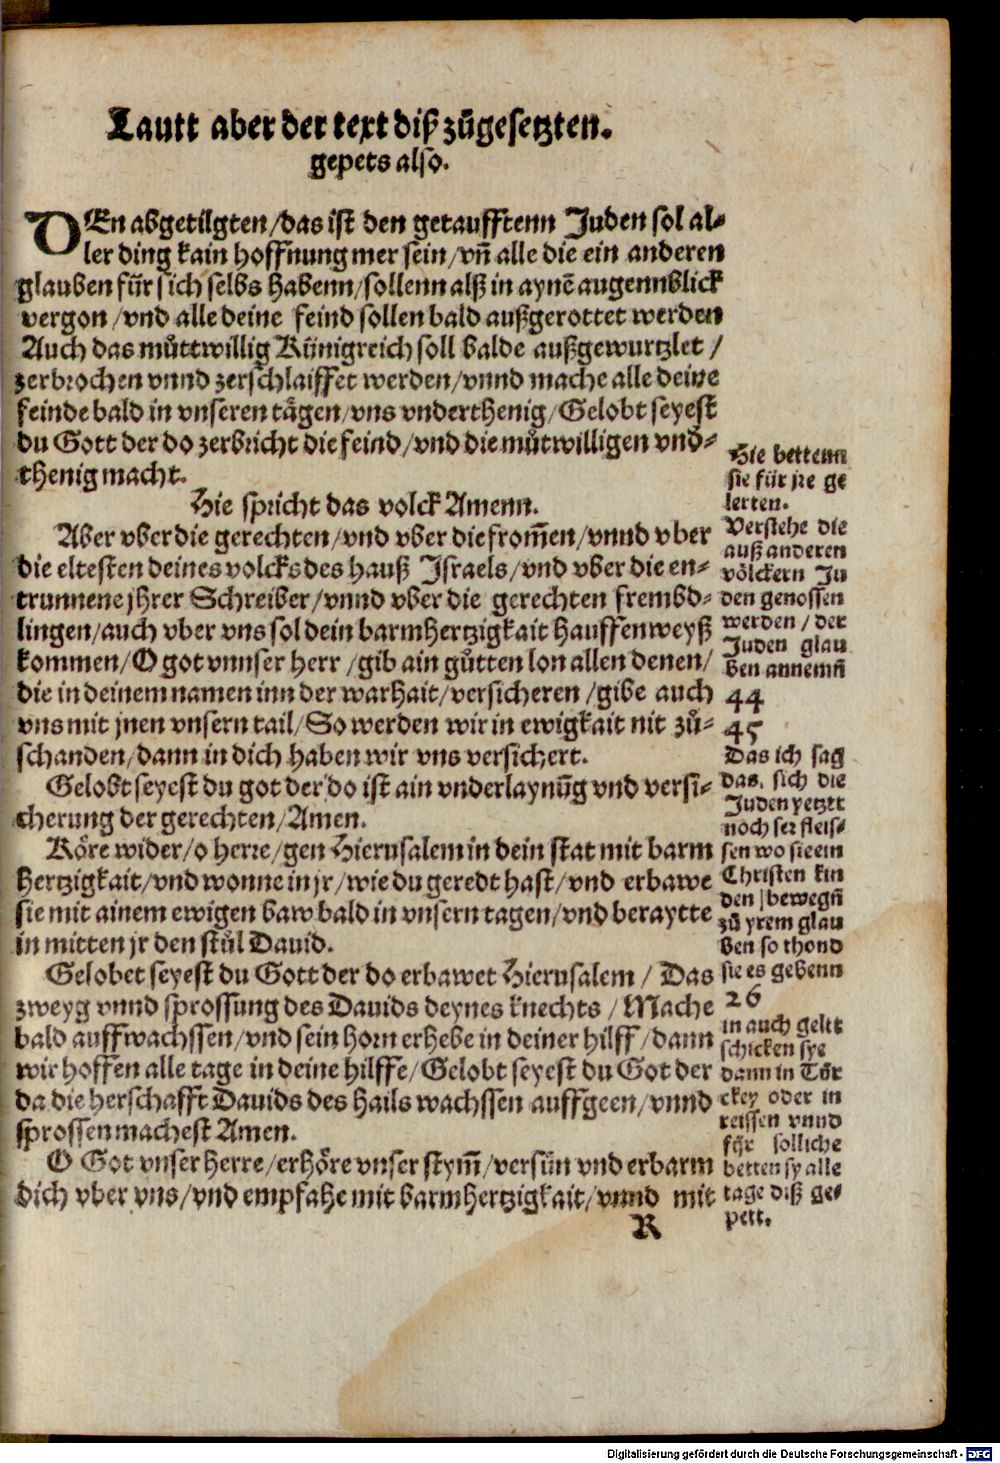 Lautt aber der text diß zůgesetzten.
gepets also.
DEn abgetilgten/das ist den getaufftenn Juden sol al-
ler ding kain hoffnung mer sein/vñ alle die ein anderen
glauben für sich selbs habenn/sollenn alß in aynẽ augennblick
vergon/vnd alle deine feind sollen bald außgerottet werden
Auch das můttwillig Künigreich soll balde außgewurtzlet/
zerbrochen vnnd zerschlaiffet werden/vnnd mache alle deine
feinde bald in vnseren tägen/vns vnderthenig/Gelobt seyest
du Gott der do zerbricht die feind/vnd die můtwilligen vnd-
thenig macht.
Hie spricht das volck Amenn.
Aber vber die gerechten/vnd vber die from̃en/vnnd vber
die eltesten deines volcks des hauß Israels/vnd vber die en-
trunnene jhrer Schreiber/vnnd vber die gerechten frembd-
lingen/auch vber vns sol dein barmhertzigkait hauffenweyß
kommen/O got vnnser herr/gib ain gůtten lon allen denen/
die in deinem namen inn der warhait/versicheren/gibe auch
vns mit jnen vnsern tail/So werden wir in ewigkait nit zů-
schanden/dann in dich haben wir vns versichert.
Gelobt seyest du got der do ist ain vnderlaynũg vnd versi-
cherung der gerechten/Amen.
Köre wider/o herre/gen Hierusalem in dein stat mit barm
hertzigkait/vnd wonne in jr/wie du geredt hast/vnd erbawe
sie mit ainem ewigen baw bald in vnsern tagen/vnd beraytte
in mitten jr den stůl Dauid.
Gelobet seyest du Gott der do erbawet Hierusalem/Das
zweyg vnnd sprossung des Dauids deynes knechts/Mache
bald auffwachssen/vnd sein horn erhebe in deiner hilff/dann
wir hoffen alle tage in deine hilffe/Gelobt seyest du Got der
da die herschafft Dauids des Hails wachssen auffgeen/vnnd
sprossen machest Amen.
O Got vnser herre/erhöre vnser stym̃/versün vnd erbarm
dich vber vns/vnd empfahe mit barmhertzigkait/vnnd mit
R
Hie bettenn
sie für jre ge
lerten.
Verstehe die
auß anderen
völckern Ju
den genossen
werden/der
Juden glau
ben annemñ
44
45
Das ich sag
das, sich die
Juden yetzt
noch ser fleis-
sen wo sie ein
Christen kin
den/bewegñ
zů yrem glau
ben so thond
sie es gebenn
26
in auch geltt
schicken sye
dann in Tür
ckey oder in
reissen vnnd
für solliche
betten sy alle
tage diß ge-
pett.
Digitalisierung gefördert durch die Deutsche Forschungsgemeinschaft - DFG